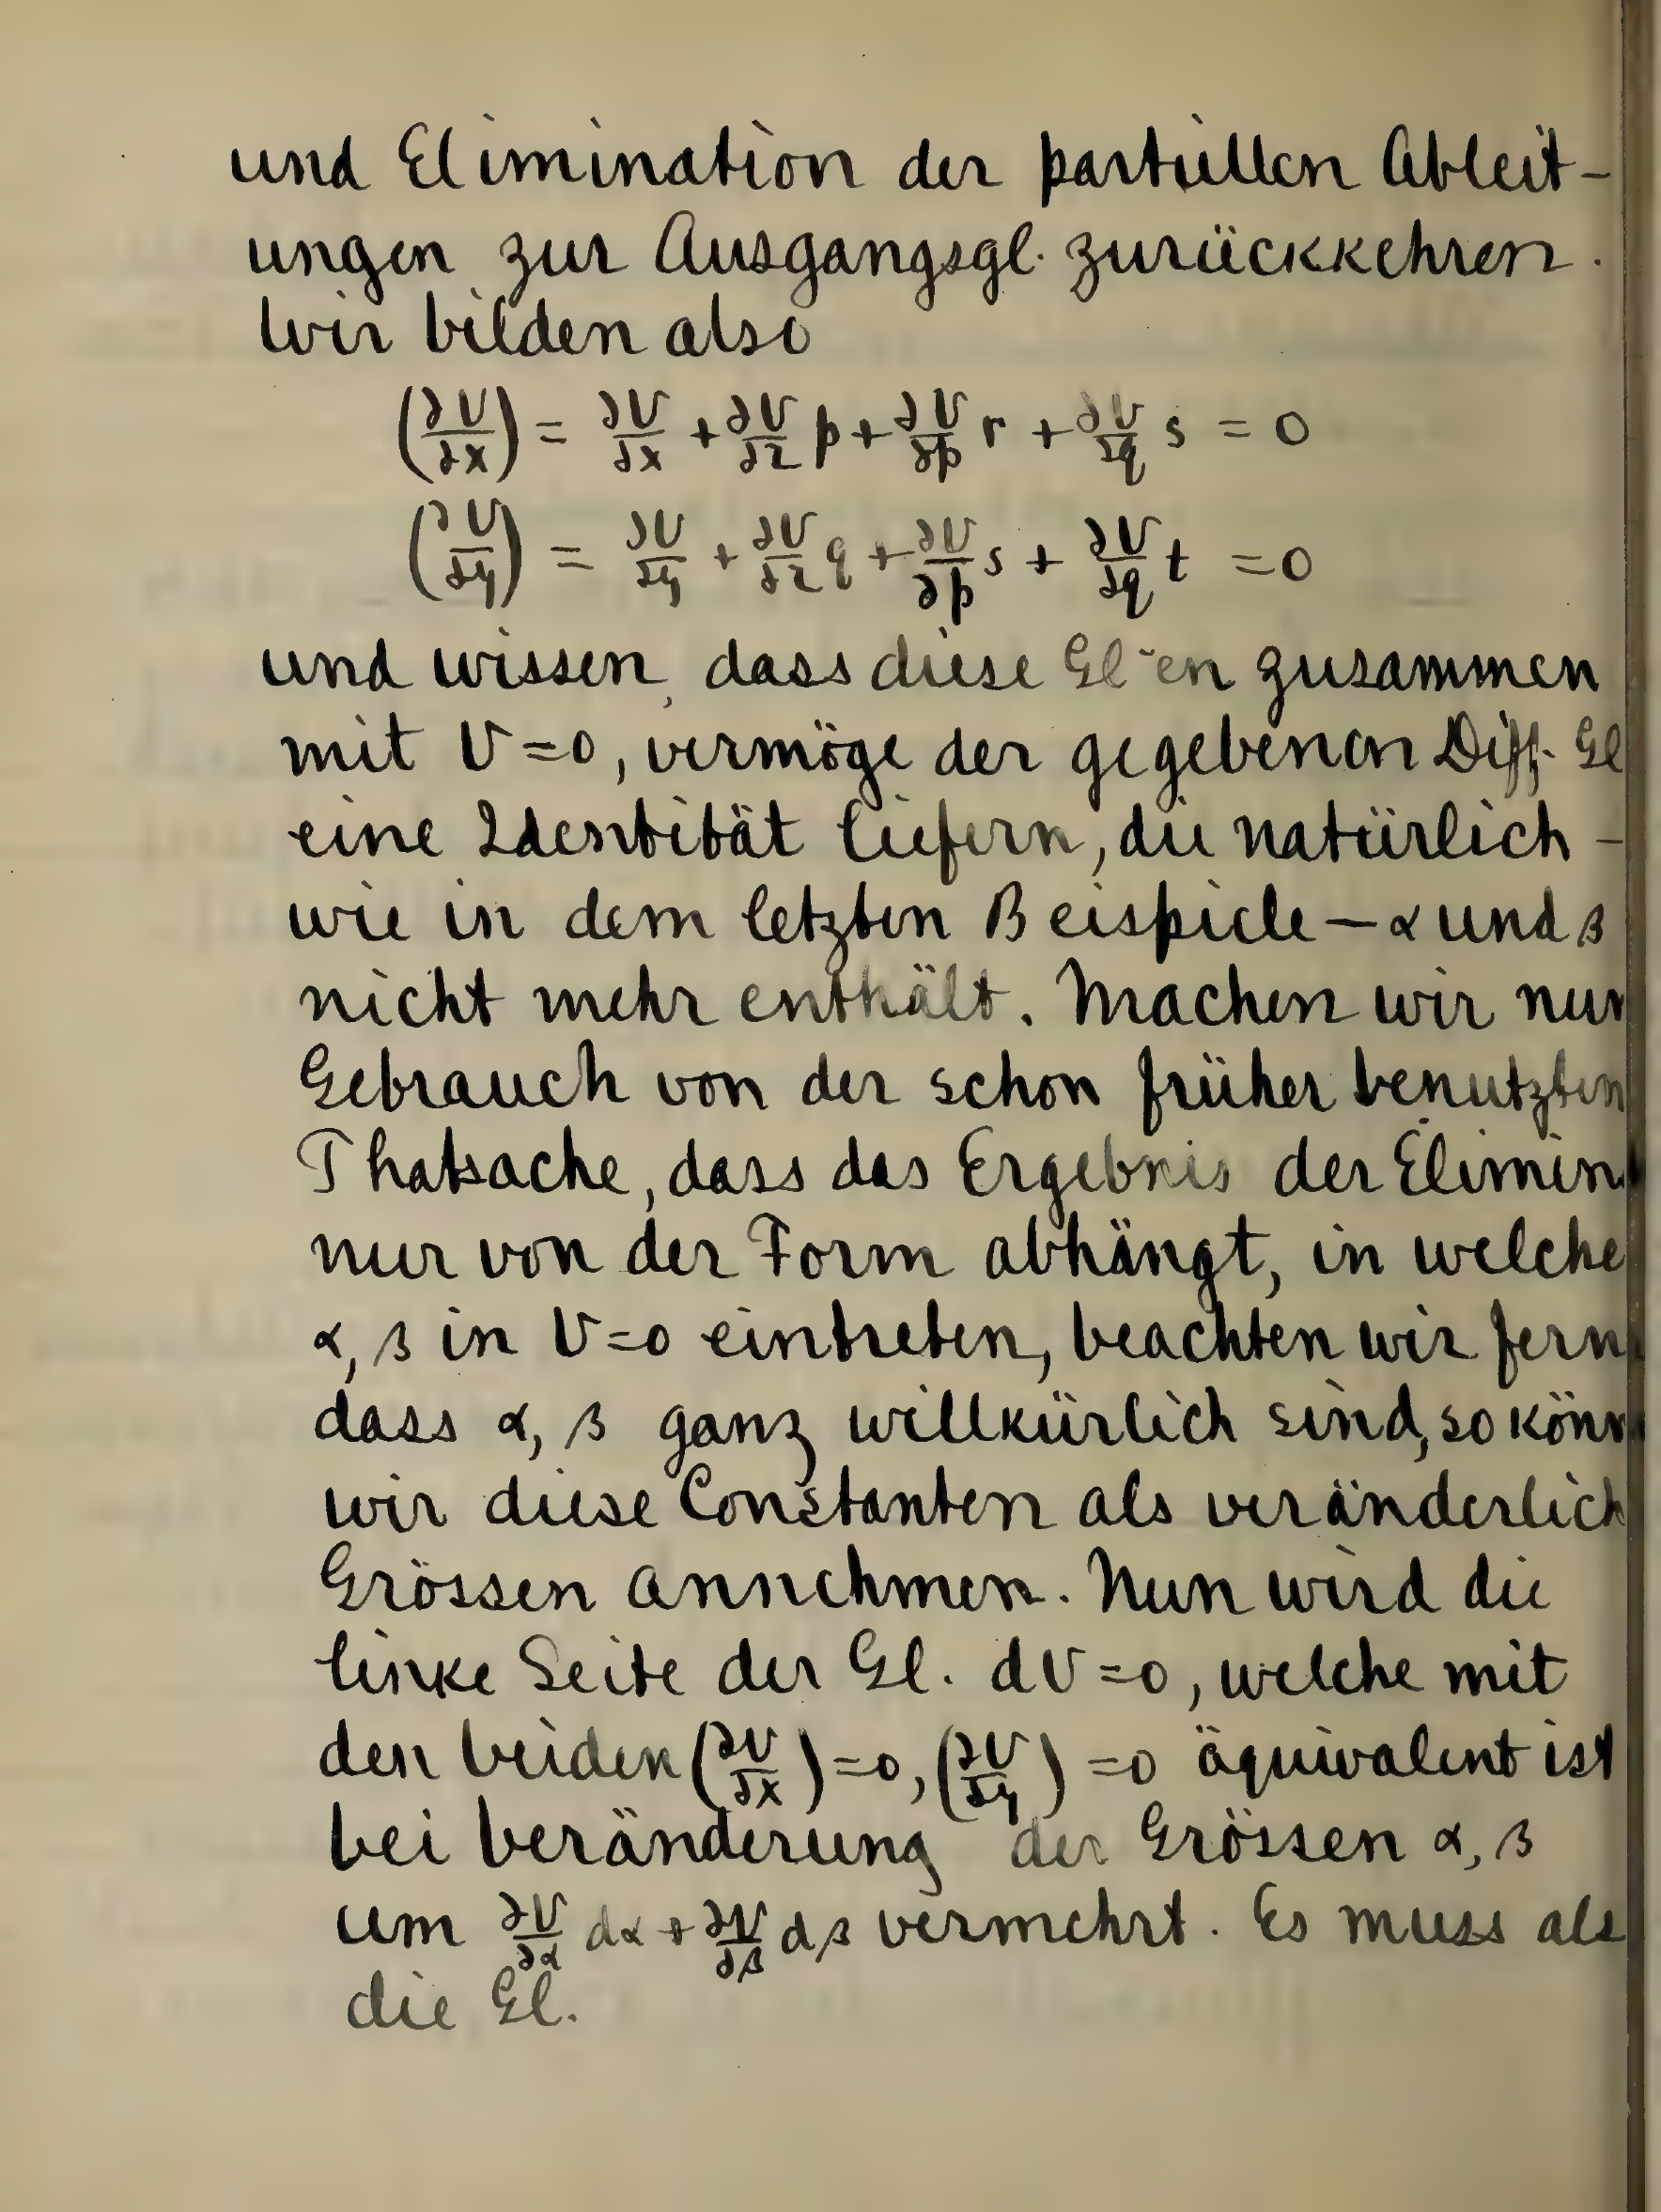 und Elimination der partiellen Ableit-
ungen zur Ausgangsgl. zurückkehren.
Wir bilden also
(∂V/∂x) = ∂V/∂x + ∂V/∂z p + ∂V/∂p r + ∂V/∂q s = 0
(∂V/∂y) = ∂V/∂y + ∂V/∂z q + ∂V/∂p s + ∂V/∂q t = 0
und wissen, dass diese Gl~en zusammen
mit V=0, vermöge der gegebenen Diff. Gl
eine Identität liefern, die natürlich –
wie in dem letzten Beispiele – α und β
nicht mehr enthält. Machen wir nun
Gebrauch von der schon früher benutzten
Thatsache, dass das Ergebnis der Elimin
nur von der Form abhängt, in welche
α, β in V=0 eintreten, beachten wir fern
dass α, β ganz willkürlich sind, so könn
wir diese Constanten als veränderlich
Grössen annehmen. Nun wird die
linke Seite der Gl. dV=0, welche mit
den beiden (∂V/∂x)=0, (∂V/∂y)=0 äquivalent ist
bei Veränderung der Grössen α, β
um ∂V/∂α dα + ∂V/∂β dβ vermehrt. Es muss als
die Gl.